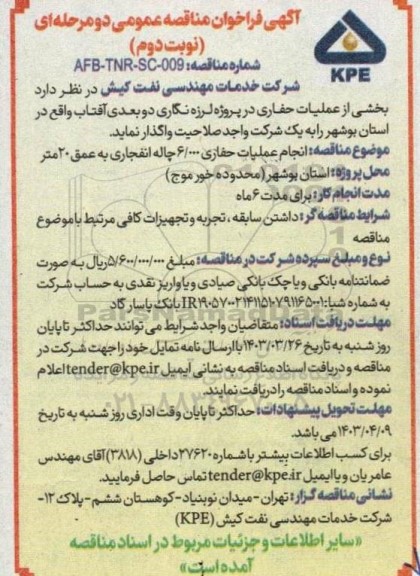 آگهی فراخوان مناقصه عمومی دو مرحله‌ای
(نوبت دوم)
شماره مناقصه: AFB-TNR-SC-009
KPE
شرکت خدمات مهندسی نفت کیش در نظر دارد
بخشی از عملیات حفاری در پروژه لرزه نگاری دو بعدی آفتاب واقع در
استان بوشهر را به یک شرکت واجد صلاحیت واگذار نماید.
موضوع مناقصه: انجام عملیات حفاری ۶/۰۰۰ چاله انفجاری به عمق ۲۰ متر
محل پروژه: استان بوشهر (محدوده خور موج)
مدت انجام کار: برای مدت ۶ ماه
شرایط مناقصه گر: داشتن سابقه، تجربه و تجهیزات کافی مرتبط با موضوع
مناقصه
نوع و مبلغ سپرده شرکت در مناقصه: مبلغ ۵/۶۰۰/۰۰۰/۰۰۰ ریال به صورت
ضمانتنامه بانکی و یا چک بانکی صیادی و یا واریز نقدی به حساب شرکت
به شماره شبا: بانک پاسارگاد
مهلت دریافت اسناد: متقاضیان واجد شرایط می توانند حداکثر تا پایان
روز شنبه به تاریخ ۱۴۰۳/۰۳/۲۶ با ارسال نامه تمایل خود را جهت شرکت در
مناقصه و دریافت اسناد مناقصه به نشانی ایمیل tender@kpe.ir اعلام
نموده و اسناد مناقصه را دریافت نمایند.
مهلت تحویل پیشنهادات: حداکثر تا پایان وقت اداری روز شنبه به تاریخ
۱۴۰۳/۰۴/۰۹ می باشد.
برای کسب اطلاعات بیشتر با شماره ۲۷۶۲۰ داخلی (۳۸۱۸) آقای مهندس
عامریان و یا ایمیل tender@kpe.ir تماس حاصل فرمایید.
نشانی مناقصه گزار: تهران - میدان نوبنیاد - کوهستان ششم - پلاک ۱۲ -
شرکت خدمات مهندسی نفت کیش (KPE)
«سایر اطلاعات و جزئیات مربوط در اسناد مناقصه
آمده است»